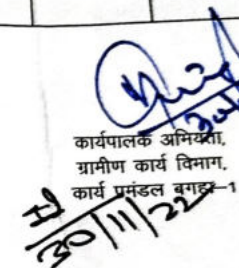 कार्यपालक अभियंता,
ग्रामीण कार्य विभाग,
कार्य प्रमंडल बगहा-1
30/11/22